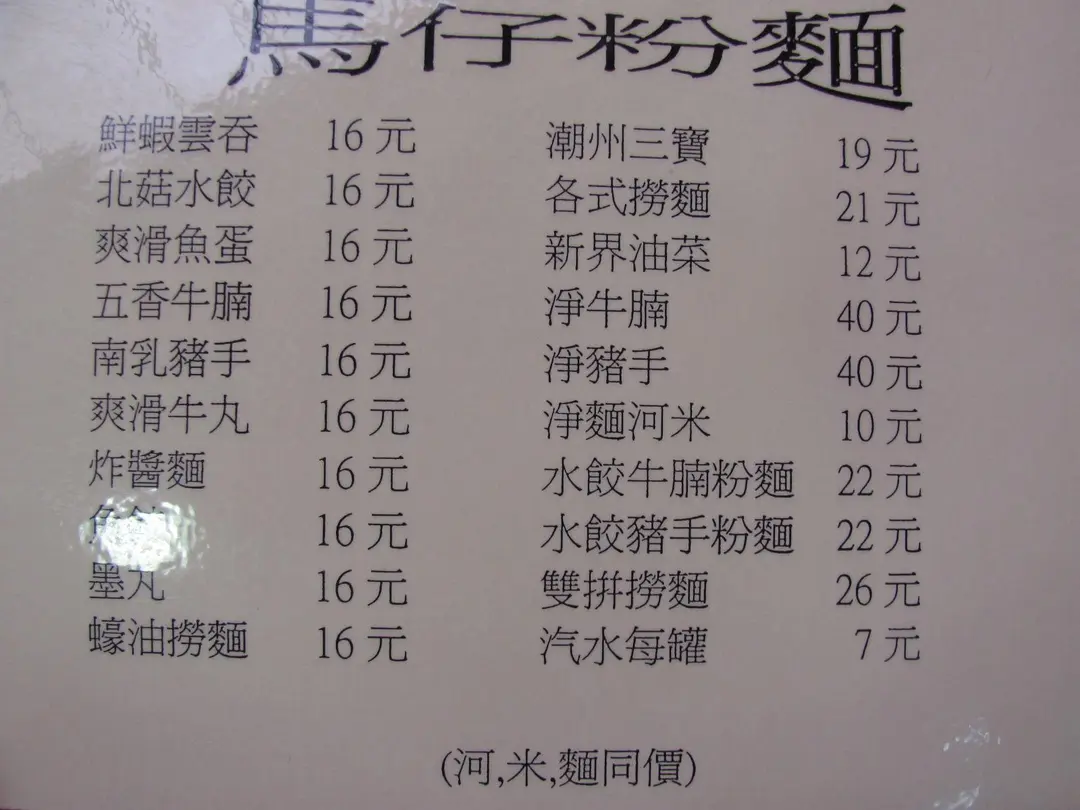 馬仔粉麵
鮮蝦雲吞 16 元
北菇水餃 16 元
爽滑魚蛋 16 元
五香牛腩 16 元
南乳豬手 16 元
爽滑牛丸 16 元
炸醬麵 16 元
16 元
墨丸 16 元
蠔油撈麵 16 元
潮州三寶 19 元
各式撈麵 21 元
新界油菜 12 元
淨牛腩 40 元
淨豬手 40 元
淨麵河米 10 元
水餃牛腩粉麵 22 元
水餃豬手粉麵 22 元
雙拼撈麵 26 元
汽水每罐 7 元
(河,米,麵同價)